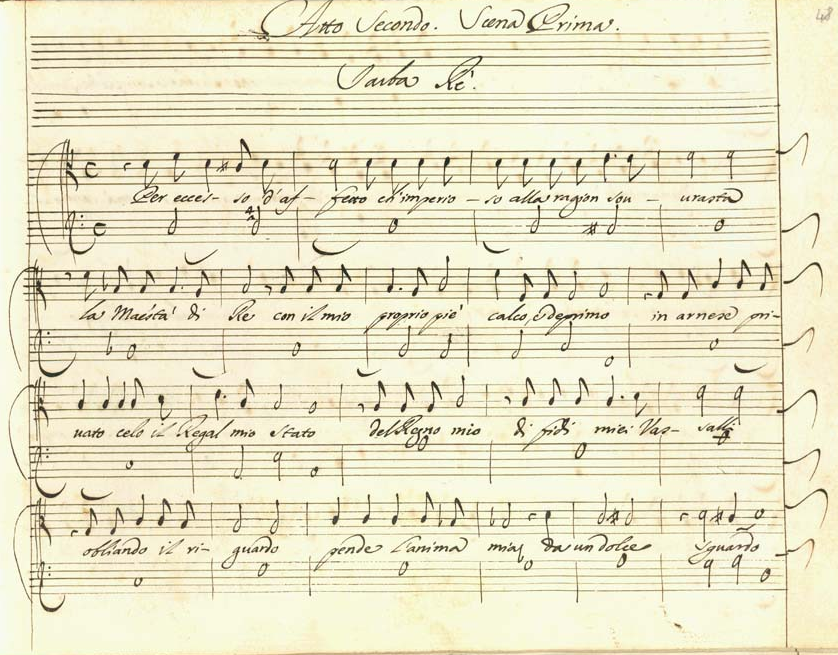 48
Atto Secondo. Scena Prima.
Jarba Re.
Per ecces- so d'af- fetto ch'imperio - so alla ragion sou - urasta
la Maestà di Re con il mio proprio piè calco, e deprimo in arnese pri-
uato celo il Regal mio stato del Regno mio di fidi miei Vas- salli
obliando il ri- guardo pende l'anima mia da un dolce sguardo